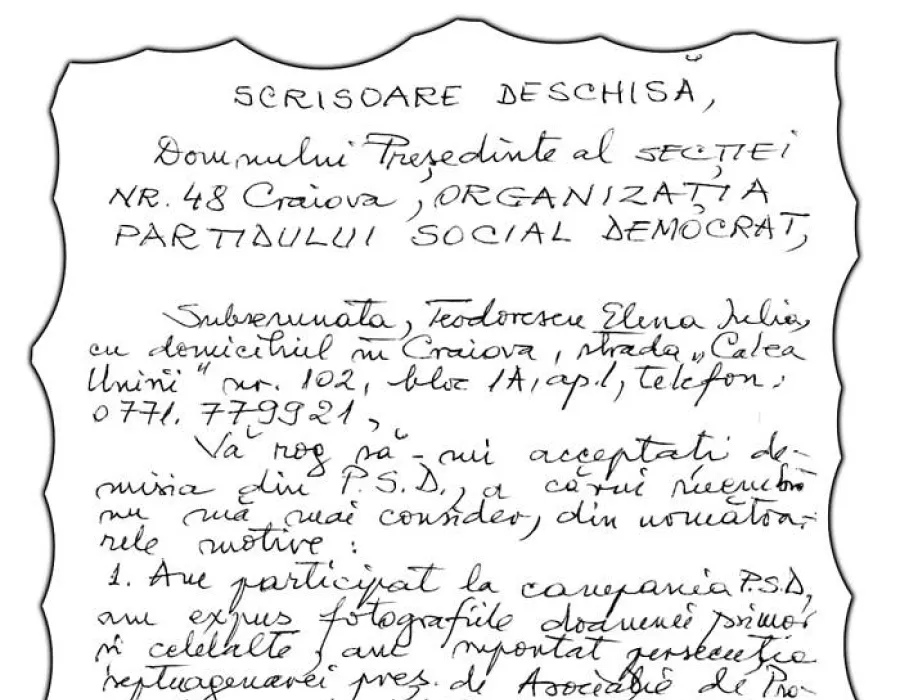 SCRISOARE DESCHISĂ,
Domnului Președinte al SECȚIEI
NR. 48 Craiova, ORGANIZAȚIA
PARTIDULUI SOCIAL DEMOCRAT,
Subsemnata, Teodorescu Elena Iulia,
cu domiciliul în Craiova, strada „Calea
Unirii" nr. 102, bloc 1A, ap.1, telefon:
0771. 779921,
Vă rog să-mi acceptați de-
misia din P.S.D., a cărui membră
nu mă mai consider, din următoa-
rele motive:
1. Am participat la campania P.S.D,
am expus fotografiile doamnei primar
și celelalte, am suportat persecuția
septuagenarei preș. de Asociație de Pro-